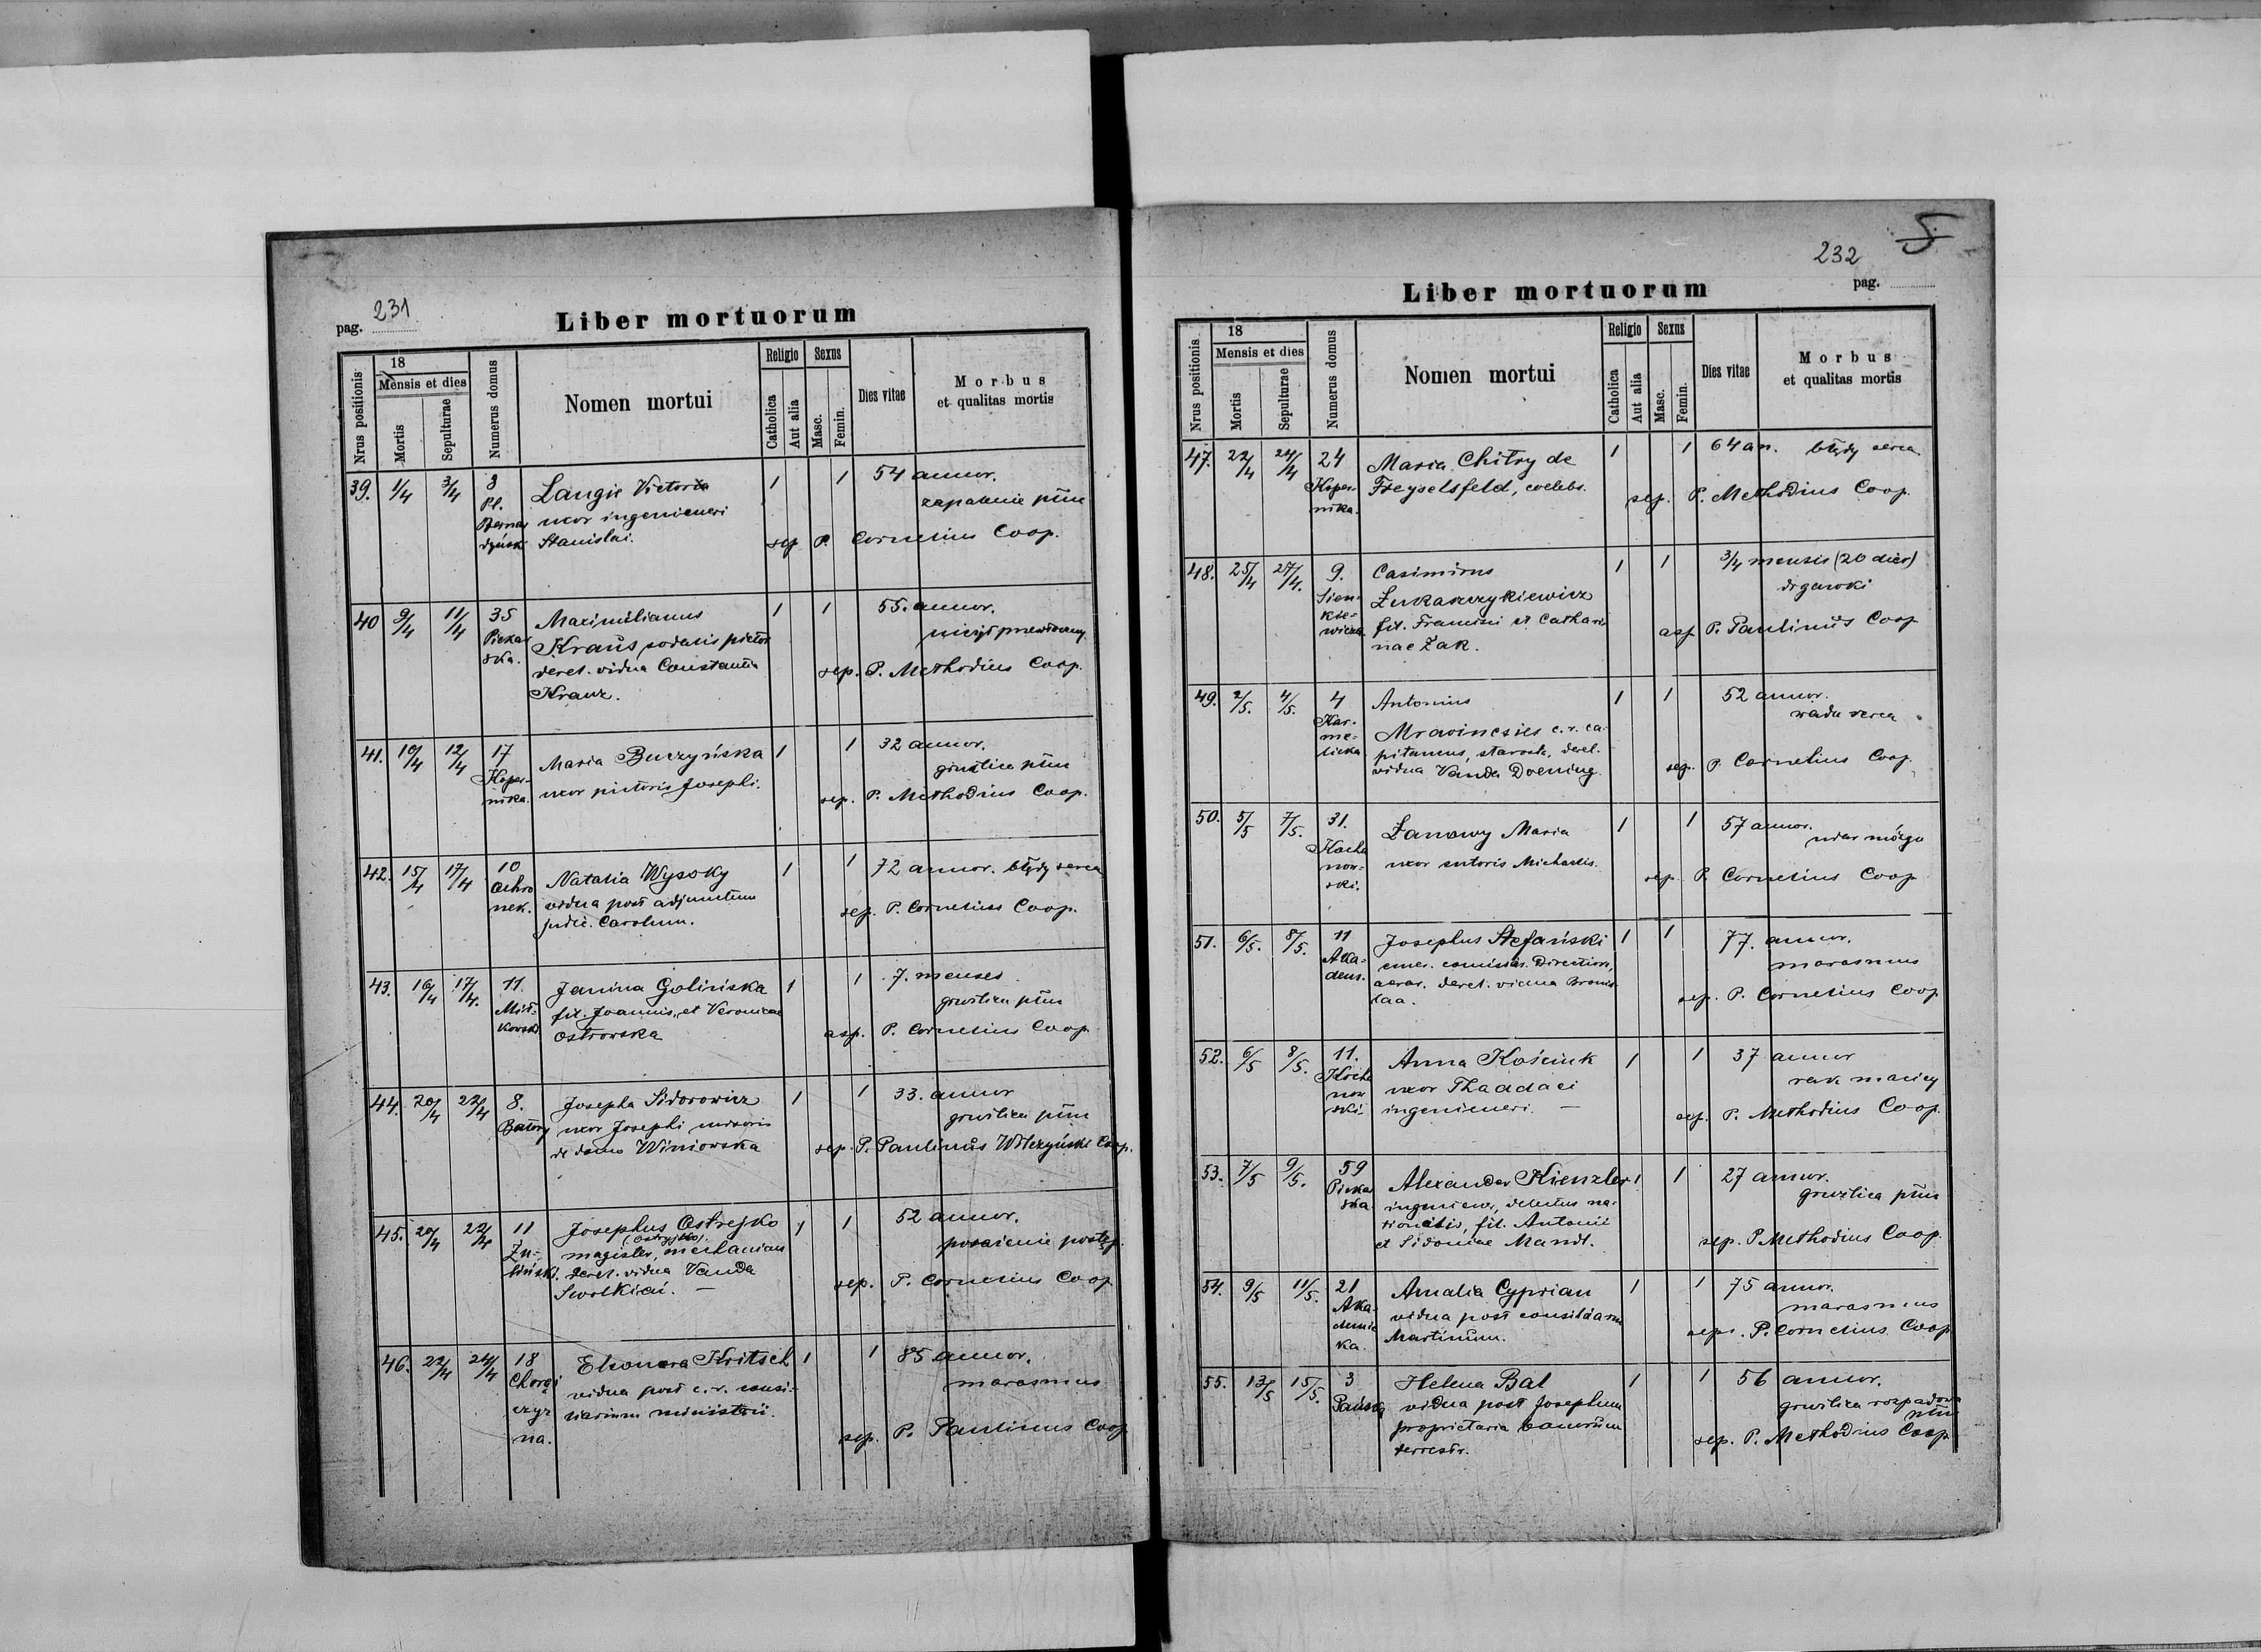 pag. 231
Liber mortuorum
Nrus positionis
18
Mensis et dies
Mortis
Sepulturae
Numerus domus
Nomen mortui
Religio
Catholica
Aut alia
Sexus
Masc.
Femin.
Dies vitae
Morbus
et qualitas mortis
39. 1/4 3/4 8 Langie Victoria 1 1 54 annor.
Pl. uxor ingenieuri zapalenie płuc
Stanislai. sep P. Cornelius Coop.
40 9/4 11/4 35 Maximilianus 1 1 55. annor.
Piekar Kraus sodalis pictor
ska. derel. vidua Constantia sep. P. Methodius Coop.
Kraux.
41. 10/4 12/4 17 Maria Buczyńska 1 1 32 annor.
Koper- gruźlica płuc
nika. uxor pictoris Josephi. sep. P. Methodius Coop.
42. 15/4 17/4 10 Natalia Wysoky 1 1 72 annor. błędy serca
Ochro vidua post adjunctum
nek. judic. Carolum. sep. P. Cornelius Coop.
43. 16/4 17/4. 11. Janina Golińska 1 1 7. menses
fil. Joannis, et Veronicae gruźlica płuc
Ostrowska asp. P. Cornelius Coop
44. 20/4 22/4 8. Josepha Sidorowicz 1 1 33. annor
Batory uxor Josephi gruźlica płuc
de domo Winiowska sep. P. Paulinus Wilczyński Coop.
45. 20/4 22/4 11 Josephus Ostrejko 1 1 52 annor.
(Ostryjko).
Zu- magister, mechanicus porażenie postęp.
lińskі. derel. vidua Vanda sep. P. Cornelius Coop
46. 22/4 24/4 18 Eleonora Kritsch 1 1 85 annor.
Chorąż vidua post c.r. consi- marasmus
czyz liarium ministerii.
na. sep. P. Paulinus Coop
232 5
pag.
Liber mortuorum
Nrus positionis
18
Mensis et dies
Mortis
Sepulturae
Numerus domus
Nomen mortui
Religio
Catholica
Aut alia
Sexus
Masc.
Femin.
Dies vitae
Morbus
et qualitas mortis
47. 22/4 24/4 24 Maria Chitry de 1 1 64 an. błędy serca
Koper- Freyselsfeld, coelebs. sep. P. Methodius Coop.
nika.
48. 25/4 27/4. 9. Casimirus 1 1 3/4 mensis (20 dies)
Sien- Łukaszykiewicz drgawki
kie- fil. et Cathari
wicza. nae Żak. asp P. Paulinus Coop
49. 2/5. 4/5. 4 Antonius 1 1 52 annor.
Kar- wada serca
me- Mravincsics c.r. ca-
licka pitaneus, starosta, derel.
vidua Vanda Doening. sep. P. Cornelius Coop.
50. 5/5 7/5. 31. Łanowy Maria 1 1 57 annor.
Kocha uxor sutoris Michaelis. udar mózgu
now- sep P. Cornelius Coop
ski.
51. 6/5. 8/5. 11 Josephus Stefański 1 1 77. annor.
Aka- emer. comissar. Direction, marasmus
dem. aerar. derel. vidua Bronis
laa. sep. P. Cornelius Coop
52. 6/5 8/5. 11. Anna Kościuk 1 1 37 annor
Kocha uxor Thaddaei rak macicy
now ingenieuri. — sep. P. Methodius Coop.
ski-
53. 7/5 9/5. 59 Alexander Kienzler 1 1 27 annor.
Piekar ingenieur, gruźlica płuc
ska fil. Antonii
et Sidoniae Mandl. sep. P Methodius Coop.
54. 9/5 11/5. 21 Amalia Cyprian 1 1 75 annor.
Aka- vidua post consiliarm marasmus
demic Martinum.
ka. sep. P. Cornelius Coop
55. 13/5 15/5. 3 Helena Bal 1 1 56 annor.
Pańska vidua post Josephum gruźlica rozpadowa
proprietaria bonorum płuc
terrestr. sep. P. Methodius Coop